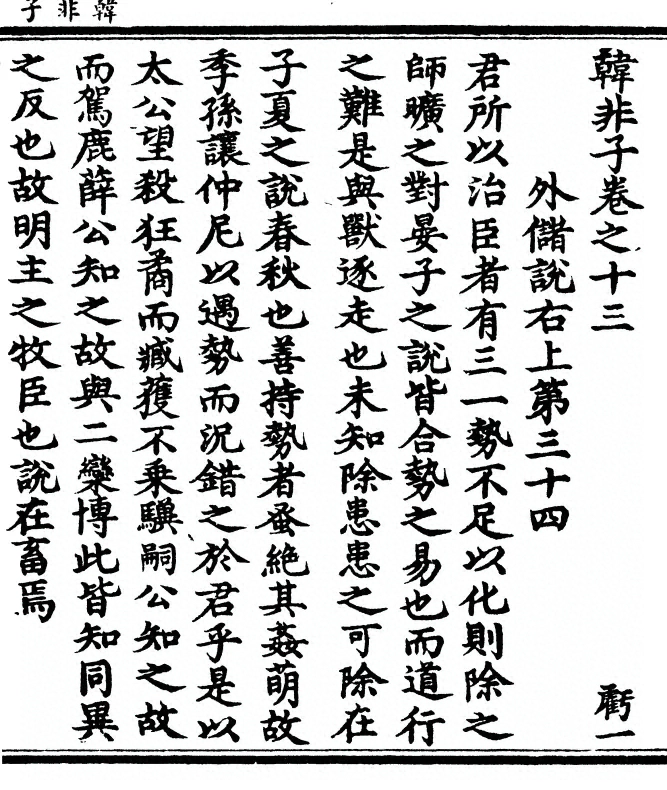 韓非子
韓非子卷之十三
虧一
外儲說右上第三十四
君所以治臣者有三一勢不足以化則除之
師曠之對晏子之說皆合勢之易也而道行
之難是與獸逐走也未知除患患之可除在
子夏之說春秋也善持勢者蚤絶其姦萌故
季孫讓仲尼以遇勢而況錯之於君乎是以
太公望殺狂矞而臧獲不乗驥嗣公知之故
而駕鹿薛公知之故與二欒博此皆知同異
之反也故明主之牧臣也說在畜焉